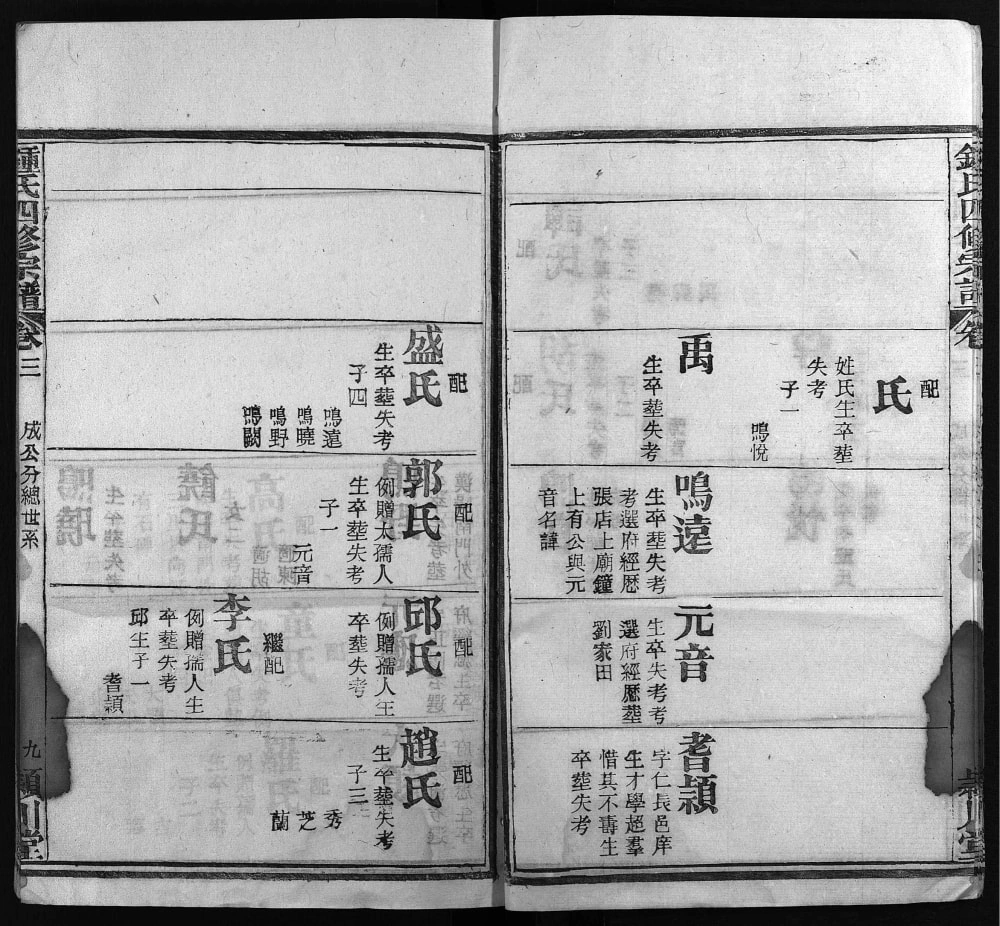 配
氏
姓氏生卒塟
失考
子一
鳴悅
禹
生卒塟失考
鳴遠
生卒塟失考
考選府經歴
張店上廟鐘
上有公與元
音名諱
元音
生卒失考考
選府經歴塟
劉家田
耆頴
字仁長邑庠
生才學超羣
惜其不壽生
卒塟失考
配
盛氏
生卒塟失考
子四
鳴遠
鳴曉
鳴野
鳴闕
配
郭氏
例贈太孺人
生卒塟失考
子一
元音
配
邱氏
例贈孺人生
卒塟失考
繼配
李氏
例贈孺人生
卒塟失考
邱生子一
耆頴
配
趙氏
生卒塟失考
子三
秀
芝
蘭
鍾氏四修宗譜
卷三
成公分總世系
九
頴川堂